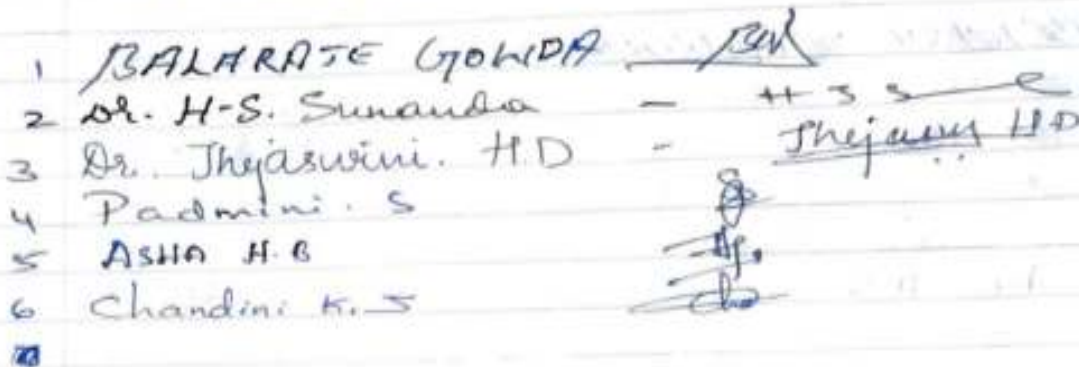 1 BALARAJE GOWDA
2 Dr. H-S. Sunanda - H S S
3 Dr. Thejaswini. H D - Thejaswini H D
4 Padmini. S
5 ASHA H.B
6 Chandini K.S